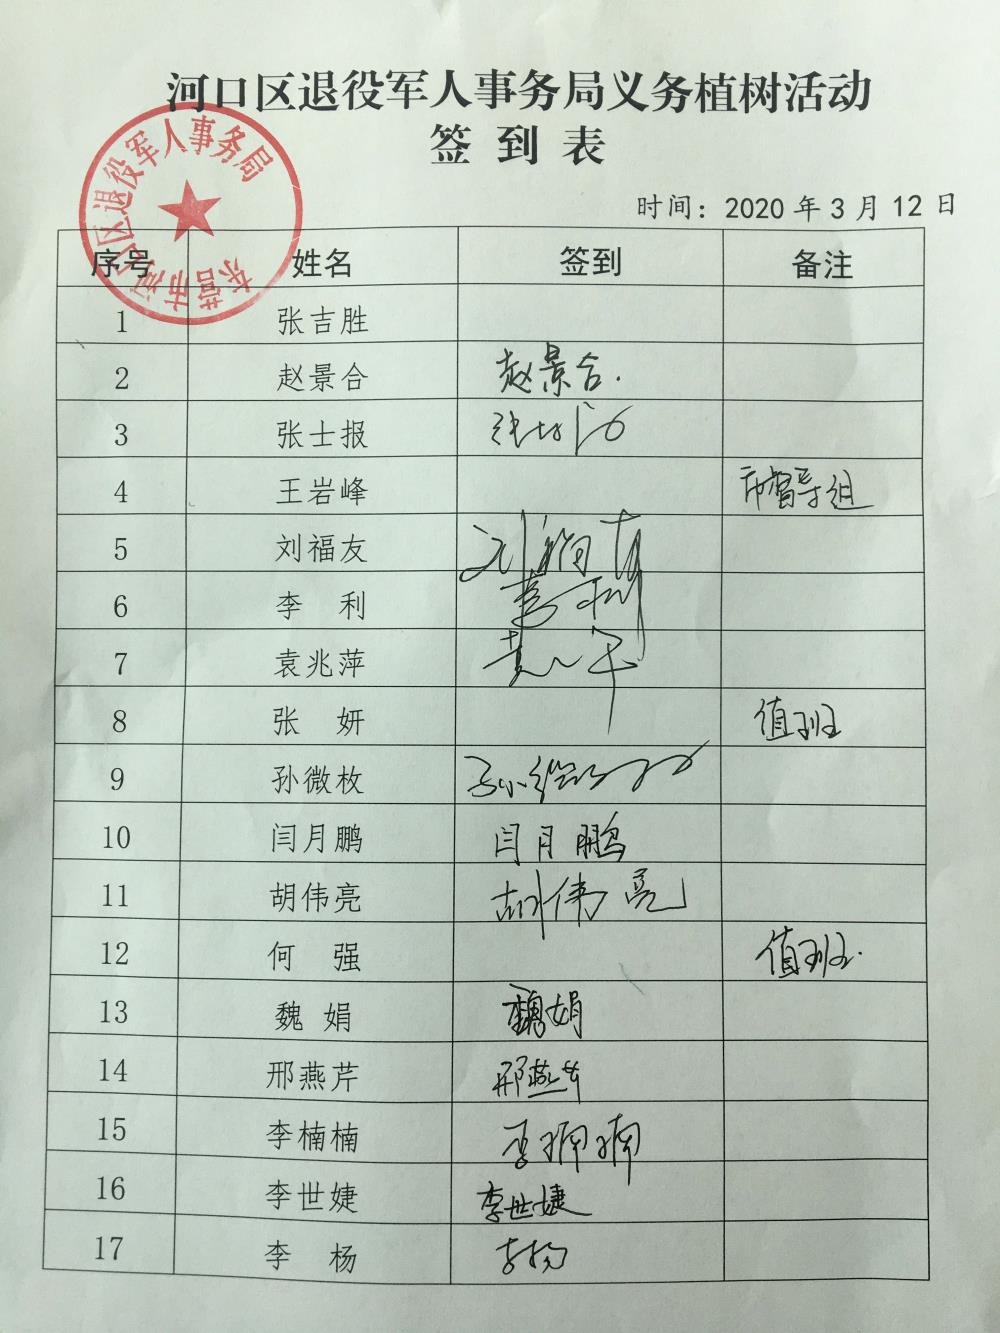 河口区退役军人事务局义务植树活动
签到表
东营市河口区退役军人事务局
时间：2020年3月12日
序号 姓名 签到 备注
1 张吉胜
2 赵景合 赵景合.
3 张士报
4 王岩峰 市督导组
5 刘福友 刘福友
6 李 利 李利
7 袁兆萍
8 张 妍 值班
9 孙微枚
10 闫月鹏 闫月鹏
11 胡伟亮 胡伟亮
12 何 强 值班.
13 魏 娟 魏娟
14 邢燕芹 邢燕芹
15 李楠楠 李楠楠
16 李世婕 李世婕
17 李 杨 李杨